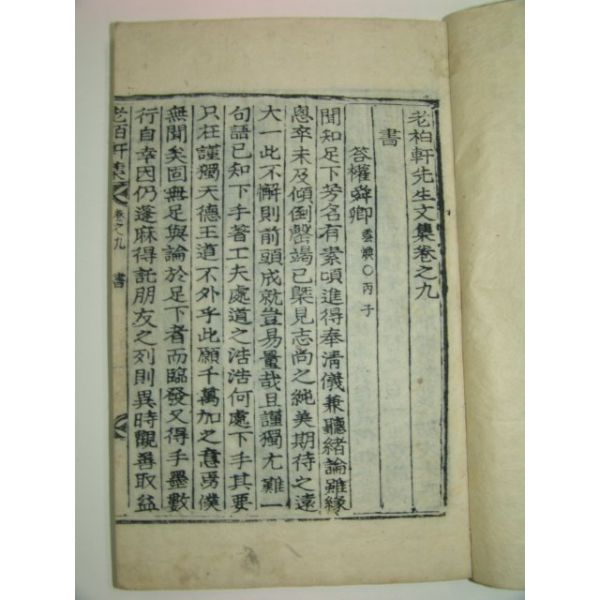 老柏軒先生文集卷之九
書
答權舜卿 雲煥○丙子
聞知足下芳名有素頃進得奉淸儀兼聽緖論雖緣
悤卒未及傾倒罄竭已槩見志尚之純美期待之遠
大一此不懈則前頭成就豈易量哉且謹獨尤難一
句語已知下手著工夫處道之浩浩何處下手其要
只在謹獨天德王道不外乎此願千萬加之意焉僕
無聞矣固無足與論於足下者而臨發又得手墨數
行自幸因仍蓬麻得託朋友之列則異時觀善取益
老栢軒集 卷之九 書